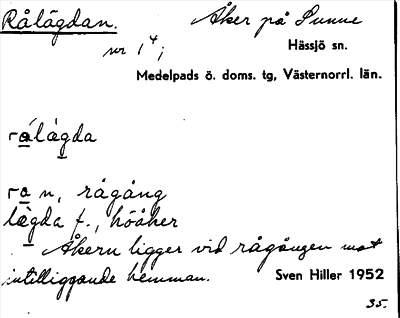 Rålägdan. Åker på Sunne
nr 1⁴;
Hässjö sn.
Medelpads ö. doms. tg, Västernorrl. län.
rålägda
ra n, rågång
lägda f., höåker
Åkern ligger vid rågången mot
intilliggande hemman.
Sven Hiller 1952
35.